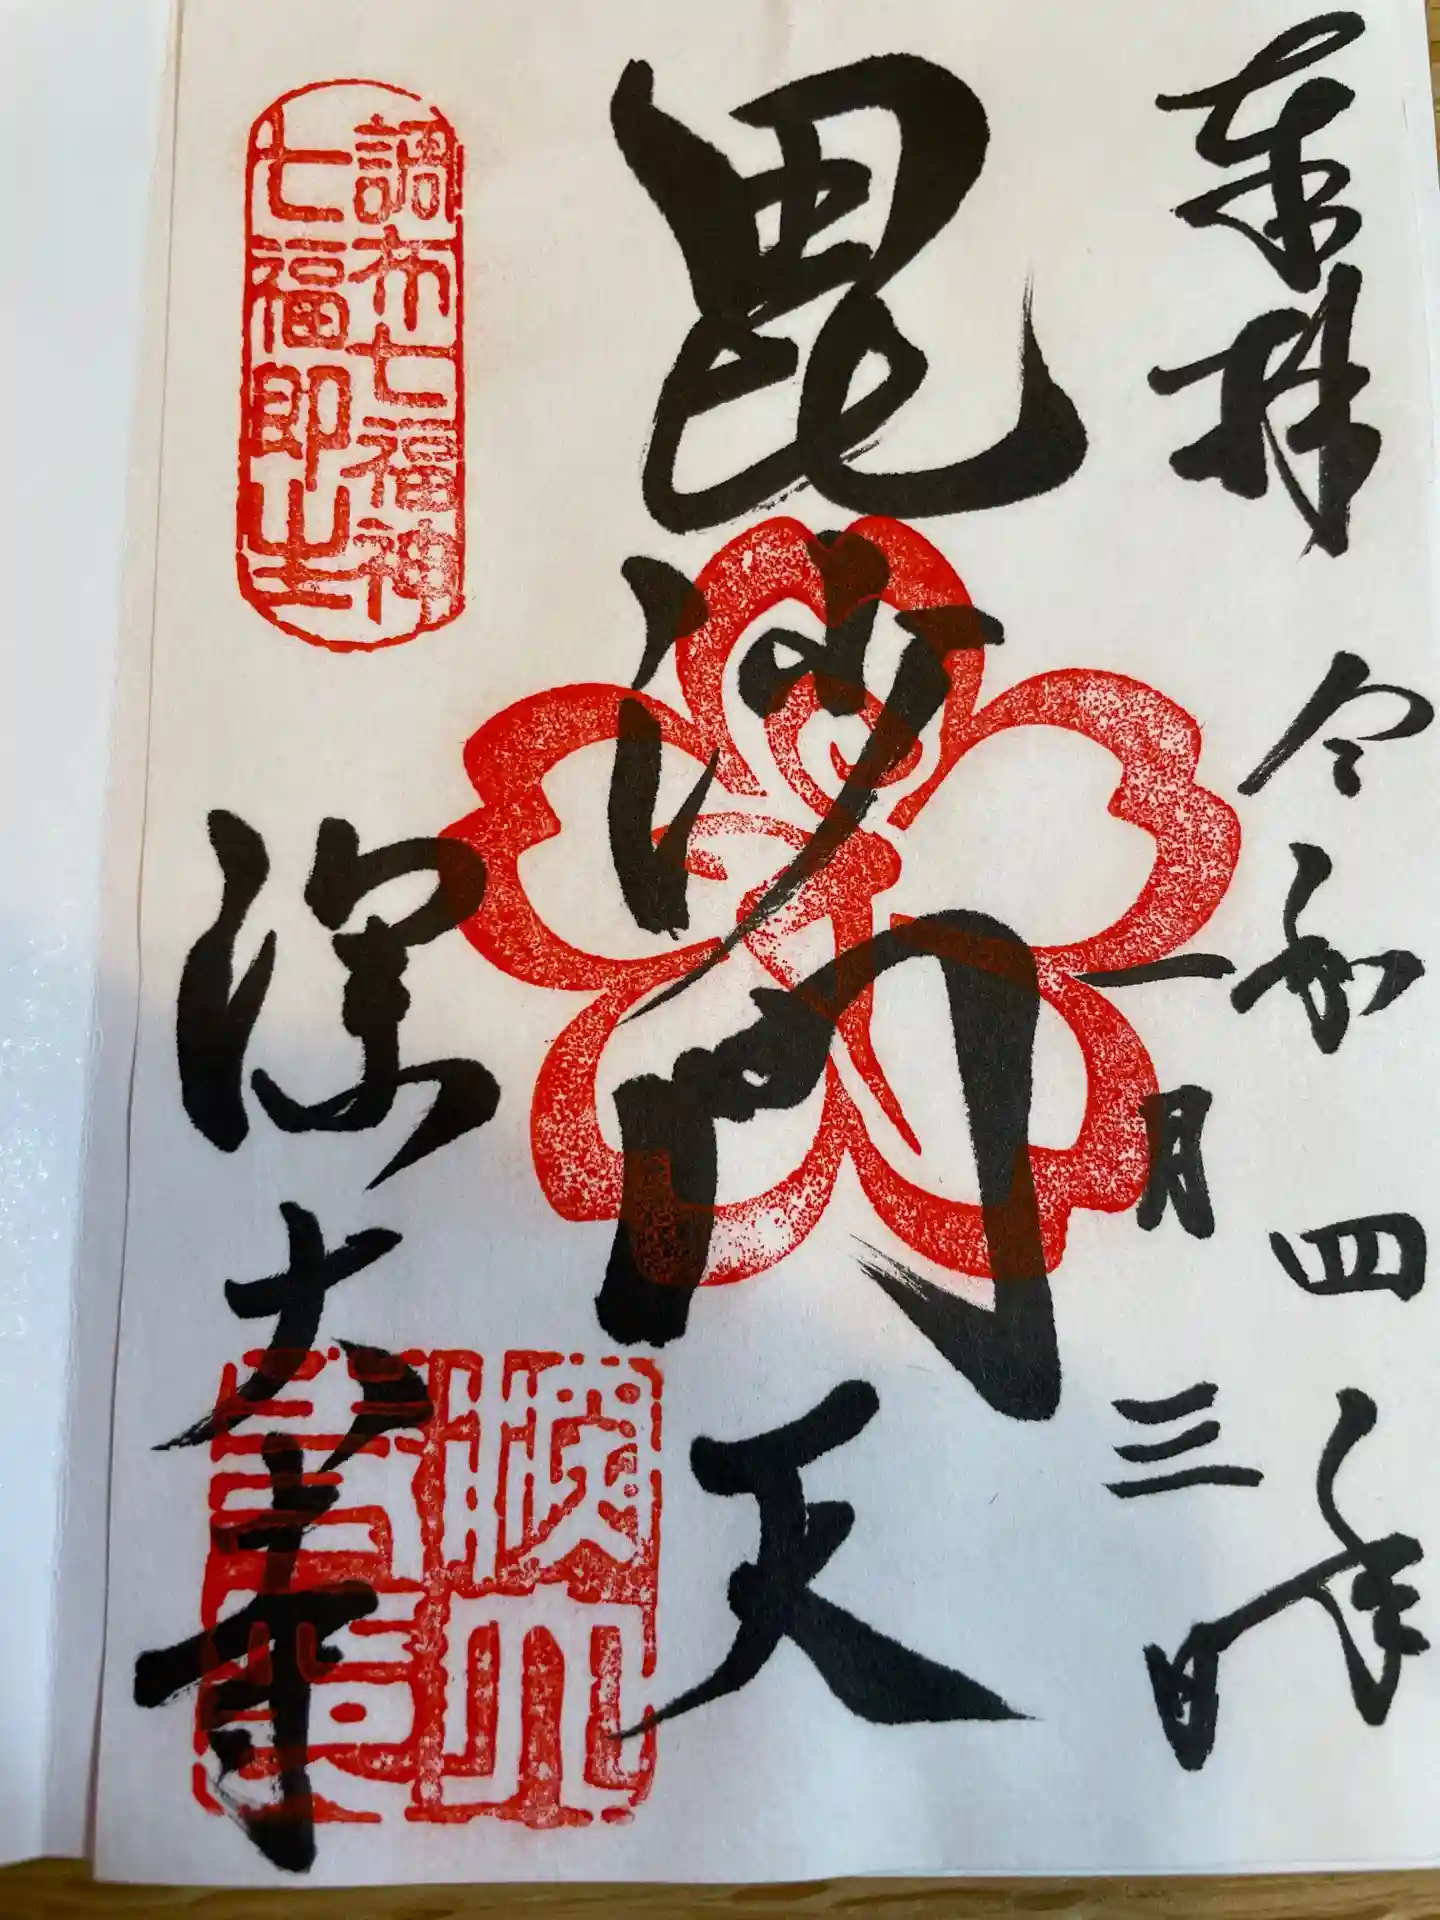 奉拝 令和四年
一月三日
毘沙門天
調布七福神
七福即生
深大寺